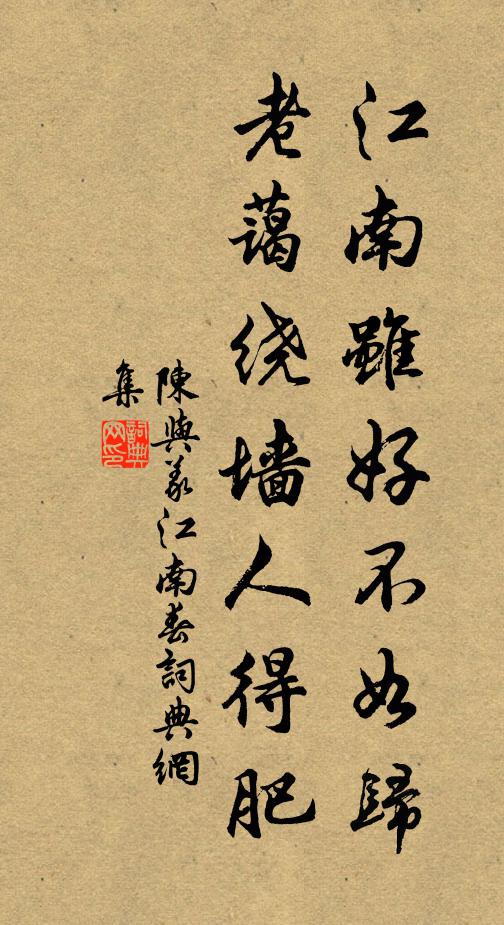 江南雖好不如歸
老藹绕墙人得肥
陳與義江南春詞典網
集
詞典网印